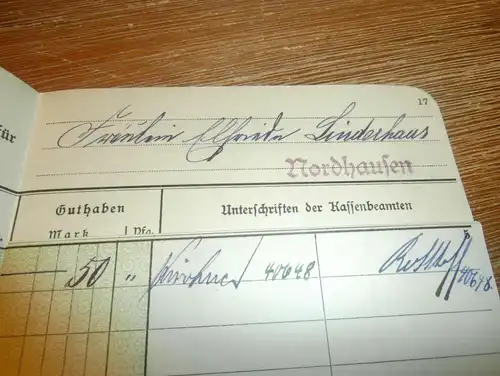 17
für
Fräulein Elfriede Linderhaus
Nordhausen
Guthaben
Unterschriften der Kassenbeamten
Mark Pfg.
5
50 " 40648 40648